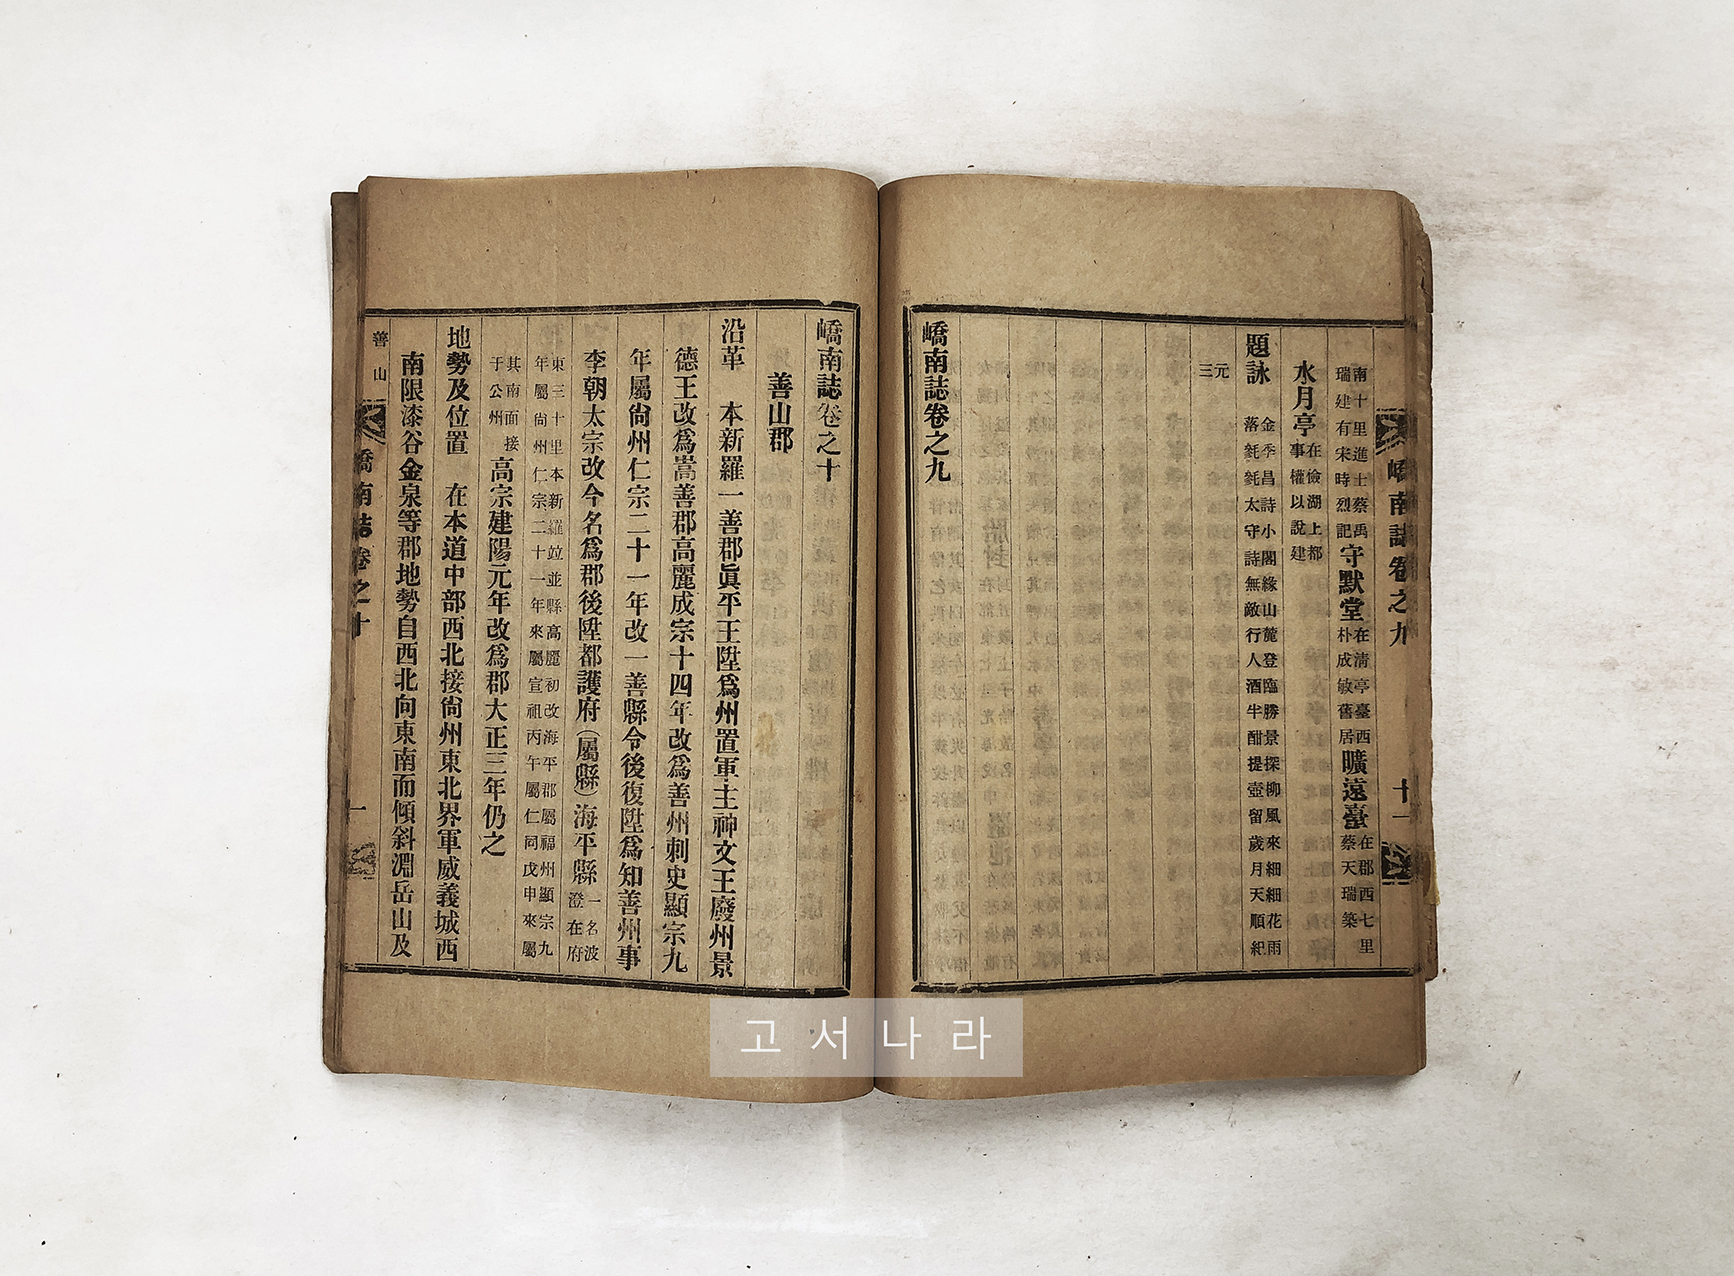 嶠南誌卷之九
十一
南十里進士蔡禹
瑞建有宋時烈記
守默堂
在清亭臺西
朴成敏舊居
曠遠臺
在郡西七里
蔡天瑞築
水月亭
在儉湖上都
事權以說建
題詠
金季昌詩小閣緣山麓登臨勝景探柳風來細細花雨
落毿毿太守詩無敵行人酒半酣提壺留歲月天順紀
元
三
嶠南誌卷之九
嶠南誌卷之十
善山郡
沿革 本新羅一善郡眞平王陞爲州置軍主神文王廢州景
德王改爲嵩善郡高麗成宗十四年改爲善州刺史顯宗九
年屬尙州仁宗二十一年改一善縣令後復陞爲知善州事
李朝太宗改今名爲郡後陞都護府(屬縣)海平縣
一名波
澄在府
東三十里本新羅竝並縣高麗初改海平郡屬福州顯宗九
年屬尙州仁宗二十一年來屬宣祖丙午屬仁同戊申來屬
其南面接
于公州
高宗建陽元年改爲郡大正三年仍之
地勢及位置 在本道中部西北接尙州東北界軍威義城西
南限漆谷金泉等郡地勢自西北向東南而傾斜淵岳山及
善山
嶠南誌卷之十
一
고서나라